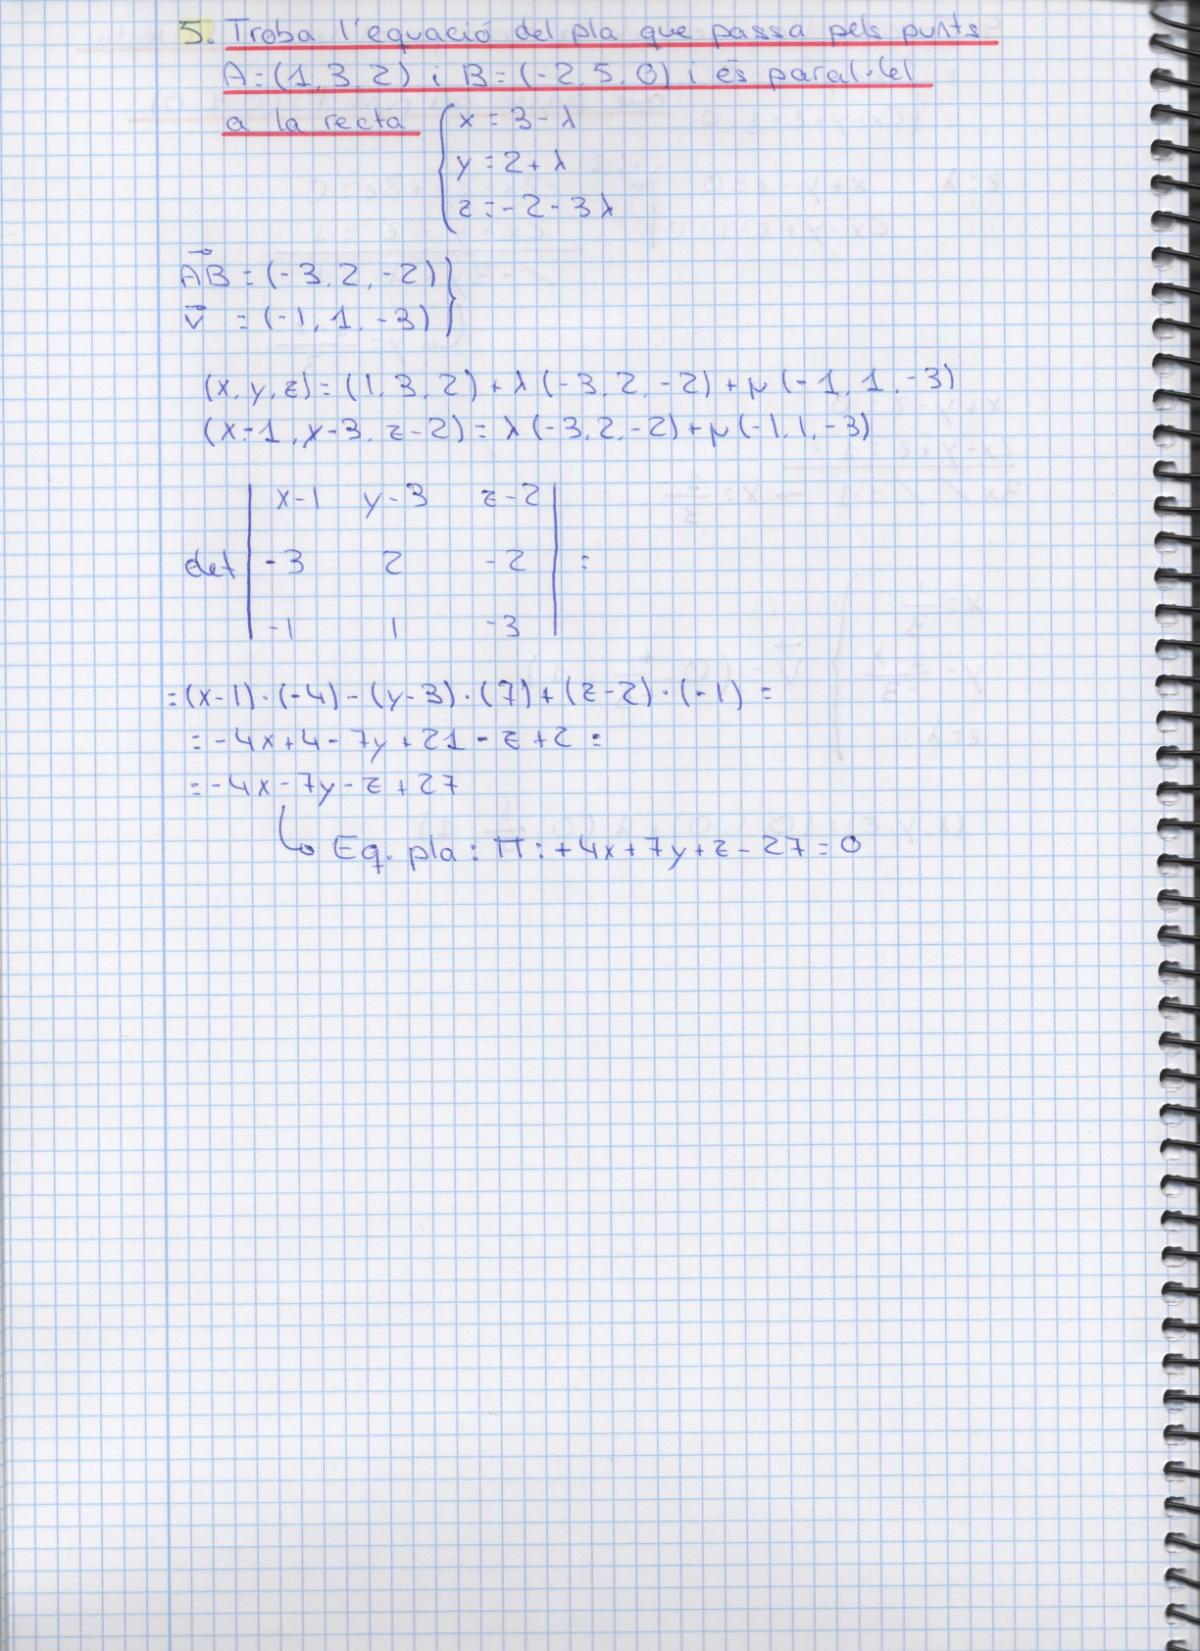 5. Troba l'equació del pla que passa pels punts
A=(1,3,2) i B=(-2,5,0) i és paral·lel
a la recta { x = 3 - λ
y = 2 + λ
z = -2 - 3λ
AB = (-3, 2, -2) }
v = (-1, 1, -3)
(x, y, z) = (1, 3, 2) + λ (-3, 2, -2) + μ (-1, 1, -3)
(x-1, y-3, z-2) = λ (-3, 2, -2) + μ (-1, 1, -3)
x-1 y-3 z-2
det | -3 2 -2 | =
-1 1 -3
= (x-1)·(-4) - (y-3)·(7) + (z-2)·(-1) =
= -4x + 4 - 7y + 21 - z + 2 =
= -4x - 7y - z + 27
↳ Eq. pla: π: +4x + 7y + z - 27 = 0